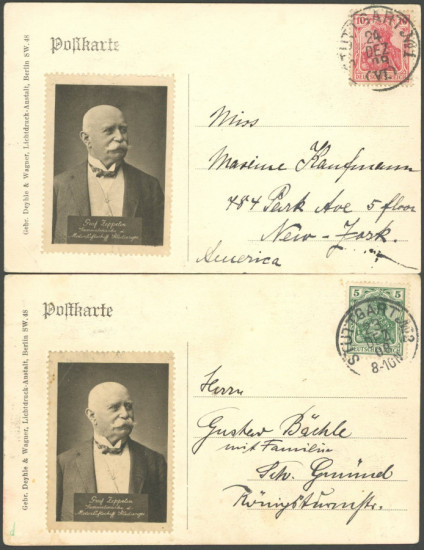 Postkarte
Gebr. Deyhle & Wagner, Lichtdruck-Anstalt, Berlin SW. 48
Graf Zeppelin
10
STUTTGART No 1
24
DEZ
Miss
Maxime Kaufmann
484 Park Ave 5 floor
New-York.
America
Postkarte
Gebr. Deyhle & Wagner, Lichtdruck-Anstalt, Berlin SW. 48
Graf Zeppelin
5
5
STUTTGART
8-10
Herrn
Gustav Bächle
mit Familie
Schw. Gmünd
Königsturmstr.